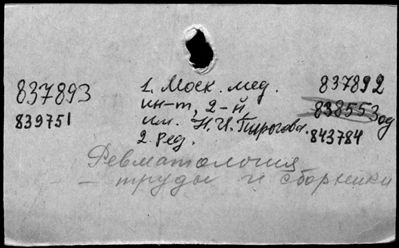 837893
839751
1. Моск. мед.
ин-т, 2-й
им. Н. И. Пирогова.
2. Ред.
837892
838553 од
843784
Ревматология
— труды и сборники